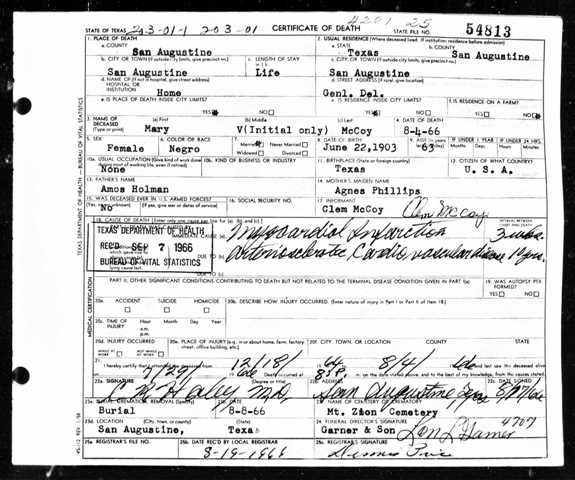 4201 25
STATE OF TEXAS 203-01-1 203-01 CERTIFICATE OF DEATH STATE FILE NO. 54813
1. PLACE OF DEATH 2. USUAL RESIDENCE (Where deceased lived. If institution: residence before admission)
a. COUNTY San Augustine a. STATE Texas b. COUNTY San Augustine
b. CITY OR TOWN (If outside city limits, give precinct no.) c. LENGTH OF STAY c. CITY OR TOWN (If outside city limits, give precinct no.)
San Augustine Life San Augustine
d. NAME OF (If not in hospital, give street address) HOSPITAL OR INSTITUTION Home d. STREET ADDRESS (If rural, give location) Genl. Del.
e. IS PLACE OF DEATH INSIDE CITY LIMITS? e. IS RESIDENCE INSIDE CITY LIMITS? f. IS RESIDENCE ON A FARM?
YES NO YES NO YES NO
3. NAME OF DECEASED (Type or print) (a) First (b) Middle (c) Last 4. DATE OF DEATH
Mary V(Initial only) McCoy 8-4-66
5. SEX 6. COLOR OR RACE 7. Married Never Married Widowed Divorced 8. DATE OF BIRTH IF UNDER 1 YEAR IF UNDER 24 HRS.
Female Negro June 22,1903 63 Months Days Hours
10a. USUAL OCCUPATION (Give kind of work done during most of working life, even if retired) 10b. KIND OF BUSINESS OR INDUSTRY 11. BIRTHPLACE (State or foreign country) 12. CITIZEN OF WHAT COUNTRY?
None Texas U. S. A.
13. FATHER'S NAME 14. MOTHER'S MAIDEN NAME
Amos Holman Agnes Phillips
15. WAS DECEASED EVER IN U.S. ARMED FORCES? 16. SOCIAL SECURITY NO. 17. INFORMANT
No (If yes, give war or dates of service) Clem McCoy Clem McCoy
18. CAUSE OF DEATH INTERVAL BETWEEN
TEXAS DEPARTMENT OF HEALTH Myocardial Infarction
REC'D SEP 7 1966 DUE TO Arteriosclerotic Cardiovascular disease
BUREAU OF VITAL STATISTICS
lying cause last. DUE TO
PART II. OTHER SIGNIFICANT CONDITIONS CONTRIBUTING TO DEATH BUT NOT RELATED TO THE TERMINAL DISEASE CONDITION GIVEN IN PART I(a) 19. WAS AUTOPSY PERFORMED?
YES NO
20a. ACCIDENT SUICIDE HOMICIDE 20b. DESCRIBE HOW INJURY OCCURRED. (Enter nature of injury in Part I or Part II of Item 18.)
20c. TIME OF INJURY Hour Month Day Year
a.m.
p.m.
20d. INJURY OCCURRED 20e. PLACE OF INJURY (e.g., in or about home, farm, factory, street, office building, etc.) 20f. CITY, TOWN, OR LOCATION COUNTY STATE
WHILE AT WORK NOT WHILE AT WORK
21. I hereby certify that I attended the deceased from 12/18/64 8/4/
22a. SIGNATURE (Degree or title) 22b. ADDRESS 22c. DATE SIGNED
M.D. San Augustine
23a. BURIAL, CREMATION, REMOVAL (Specify) 23b. DATE 23c. NAME OF CEMETERY OR CREMATORY
Burial 8-8-66 Mt. Zion Cemetery
23d. LOCATION (City, town, or county) (State) 24. FUNERAL DIRECTOR'S SIGNATURE 4707
San Augustine, Texas Garner & Son Garner
25a. REGISTRAR'S FILE NO. 25b. DATE REC'D BY LOCAL REGISTRAR 25c. REGISTRAR'S SIGNATURE
8-19-1966
TEXAS DEPARTMENT OF HEALTH — BUREAU OF VITAL STATISTICS
MEDICAL CERTIFICATION